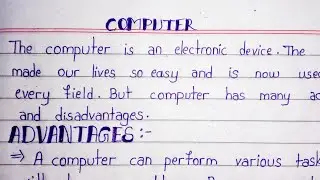 COMPUTER
The computer is an electronic device. The
made our lives so easy and is now used
every field. But computer has many
and disadvantages.
ADVANTAGES :-
⇒ A computer can perform various task